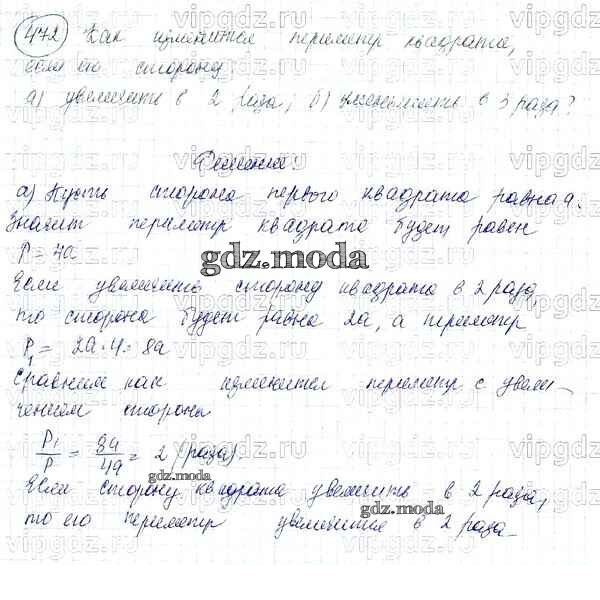 472 Как изменится периметр квадрата,
если его сторону:
а) увеличить в 2 раза; б) уменьшить в 3 раза?
Решение:
а) Пусть сторона первого квадрата равна a.
Значит периметр квадрата будет равен
P = 4a
Если увеличить сторону квадрата в 2 раза,
то сторона будет равна 2a, а периметр
P₁ = 2a·4 = 8a
Сравним как изменится периметр с увели-
чением стороны
P₁/P = 8a/4a = 2 (раза).
Если сторону квадрата увеличить в 2 раза,
то его периметр увеличится в 2 раза
gdz.moda
gdz.moda
gdz.moda
vipgdz.ru